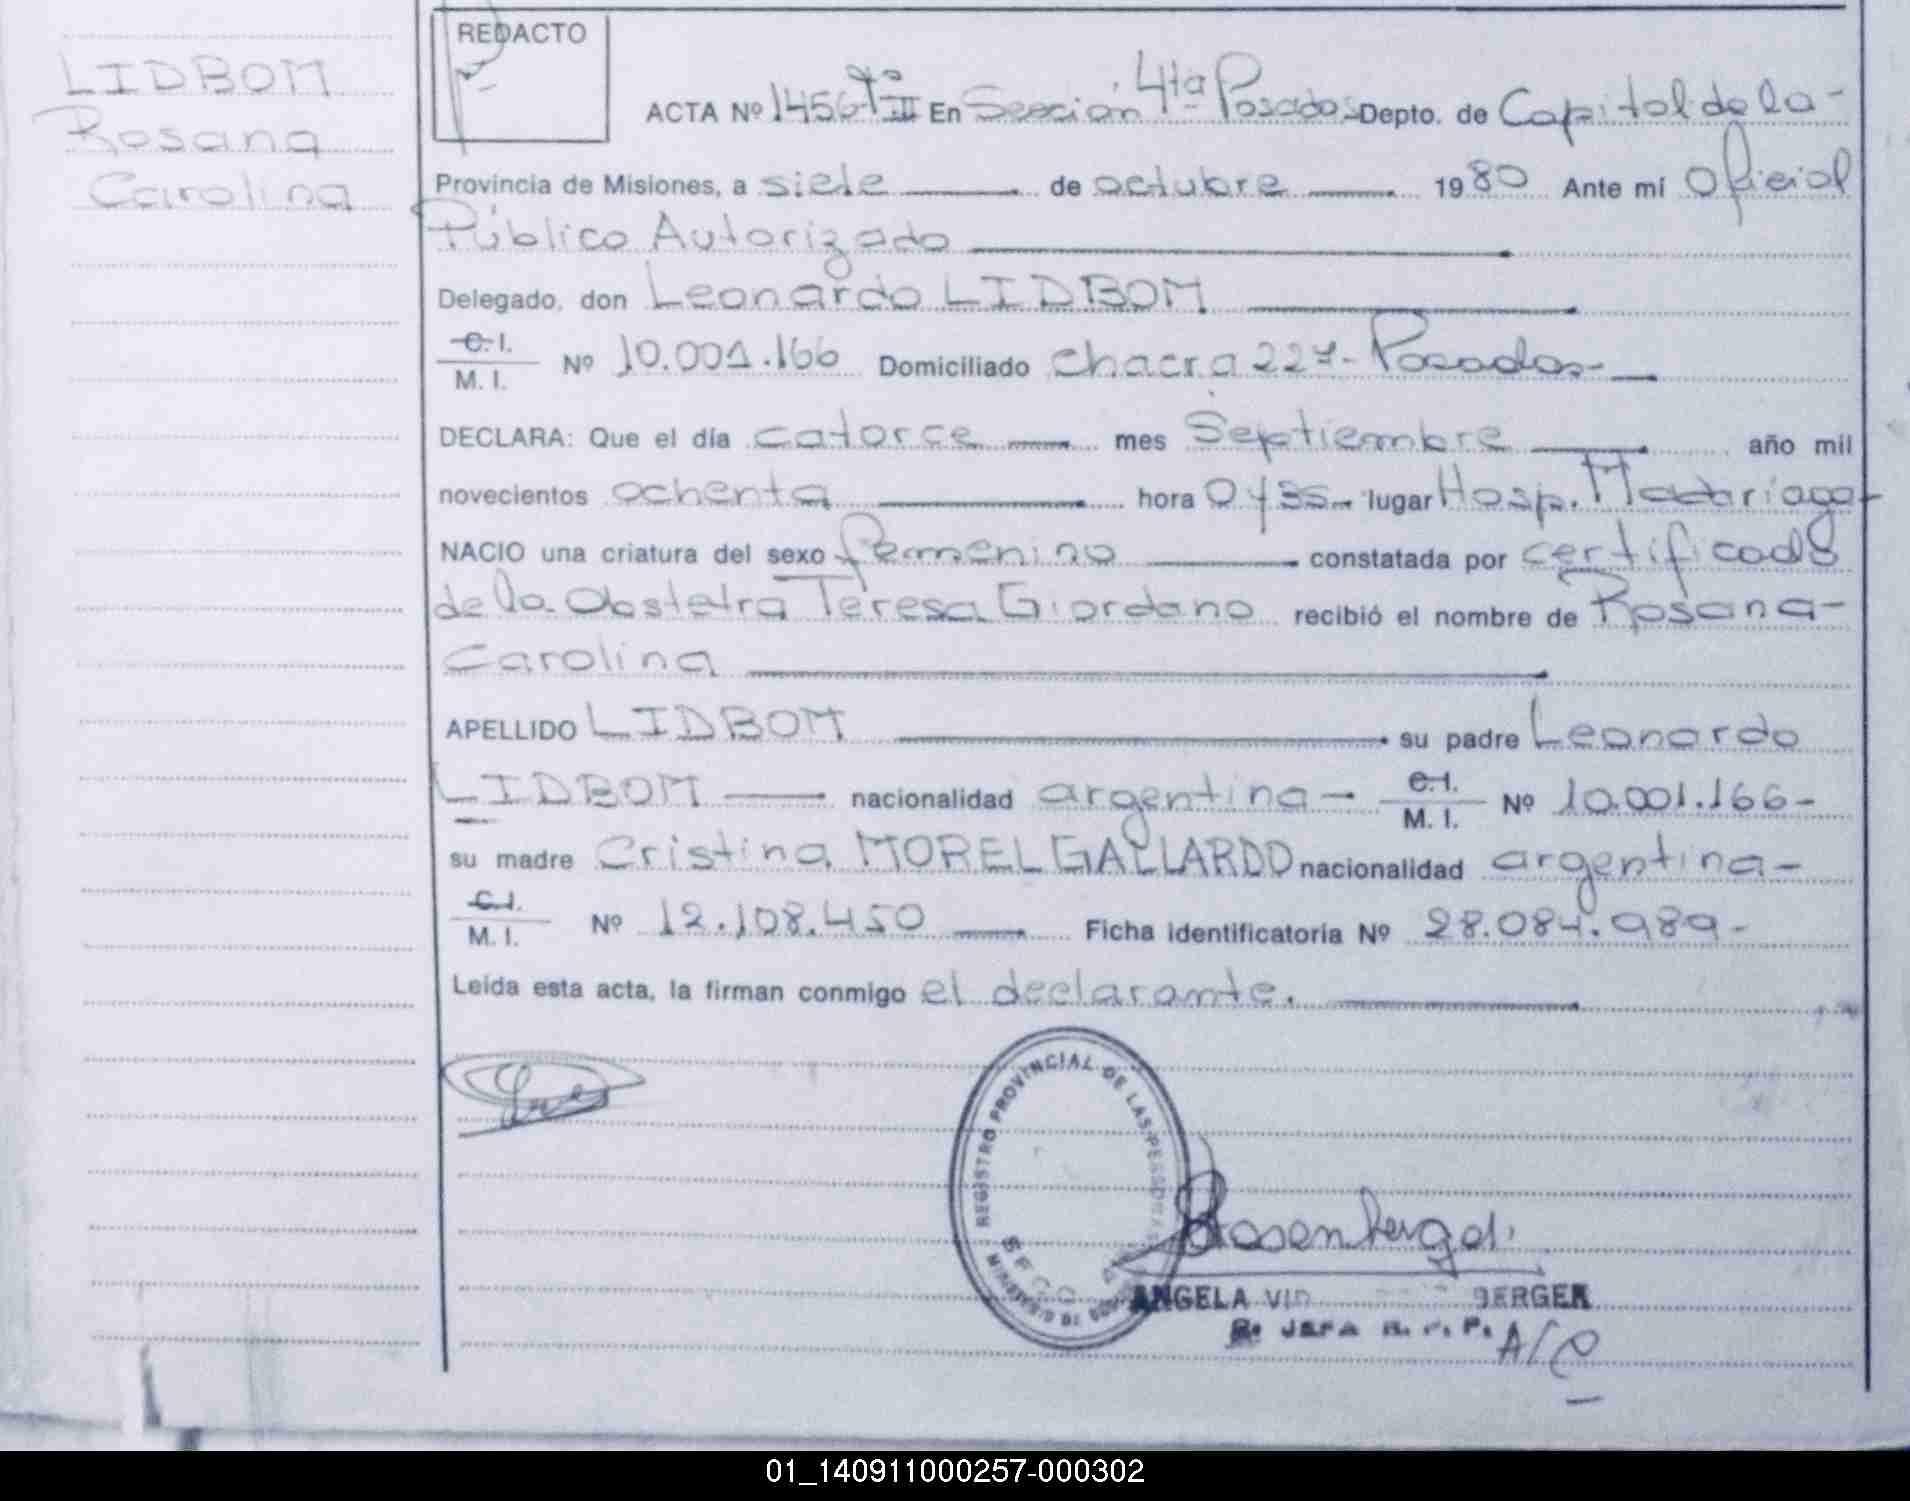 LIDBOM
Rosana
Carolina
REDACTO
ACTA Nº 1456 Tº III En Sección 4ta Posadas Depto. de Capital de la-
Provincia de Misiones, a siete de octubre 1980 Ante mí Oficial
Público Autorizado
Delegado, don Leonardo LIDBOM
C.I.
M. I. Nº 10.001.166 Domiciliado chacra 227- Posadas-
DECLARA: Que el día catorce mes Septiembre año mil
novecientos ochenta hora 0y35- lugar Hosp. Madariaga-
NACIO una criatura del sexo femenino constatada por certificado
de la Obstetra Teresa Giordano recibió el nombre de Rosana-
Carolina
APELLIDO LIDBOM su padre Leonardo
LIDBOM nacionalidad argentina- C.I.
M. I. Nº 10.001.166-
su madre Cristina MOREL GALLARDO nacionalidad argentina-
C.I.
M. I. Nº 12.108.450 Ficha identificatoria Nº 28.084.989-
Leída esta acta, la firman conmigo el declarante.
REGISTRO PROVINCIAL DE LAS PERSONAS
MINISTERIO DE
ANGELA BERGER
JEFA R. P. P. A/C
01_140911000257-000302